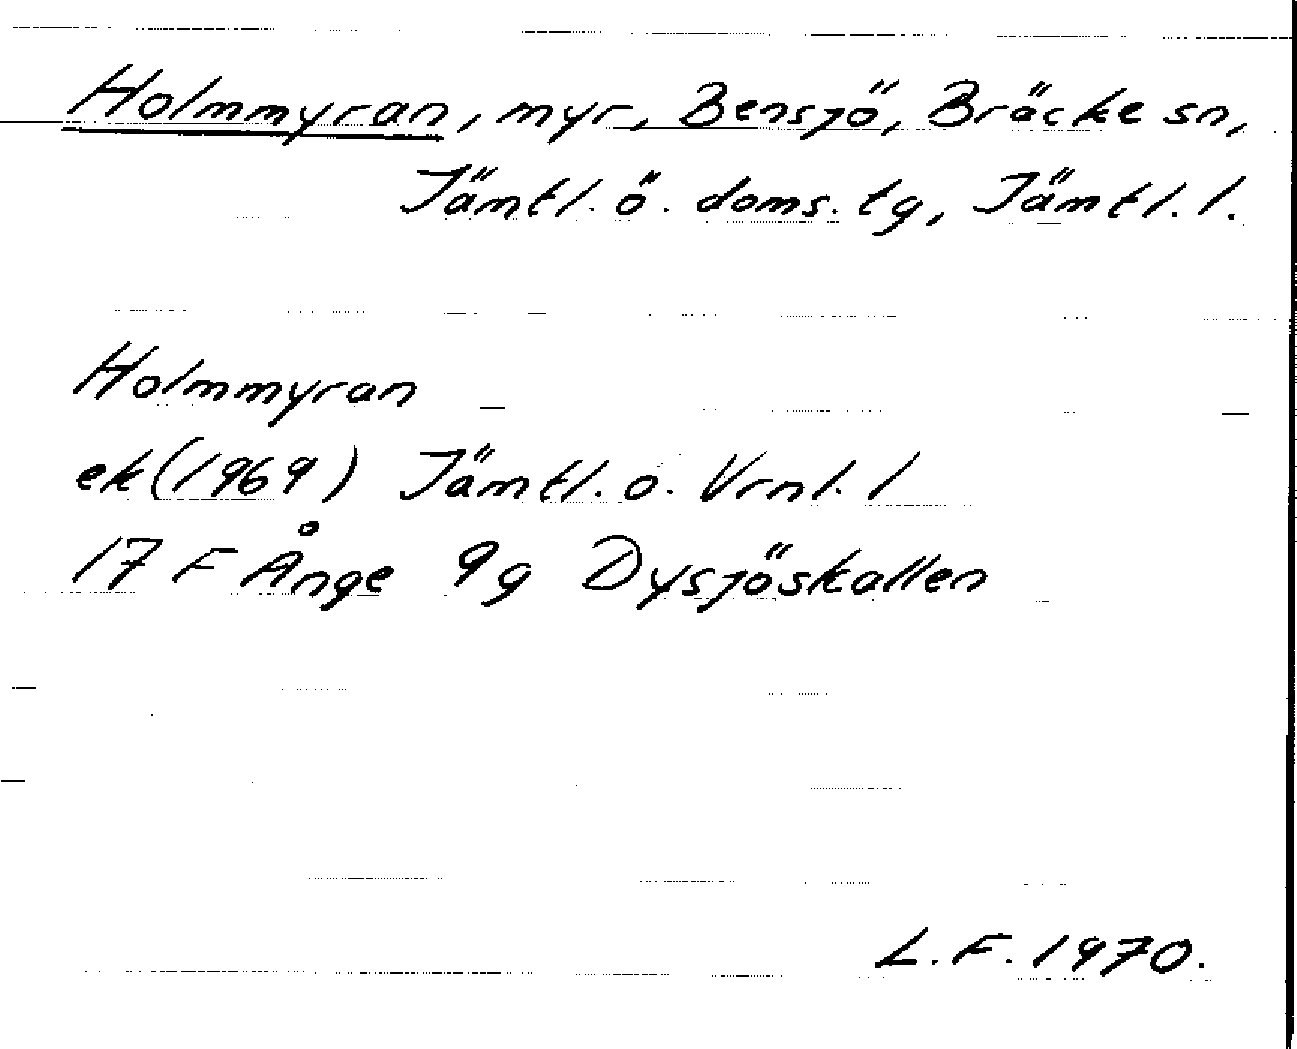 Holmmyran, myr, Bensjö, Bräcke sn,
Jämtl. ö. doms. tg, Jämtl. l.
Holmmyran
ek (1969) Jämtl. o. Vrnl. l
17 F Ånge 9g Dysjöskallen
L. F. 1970.